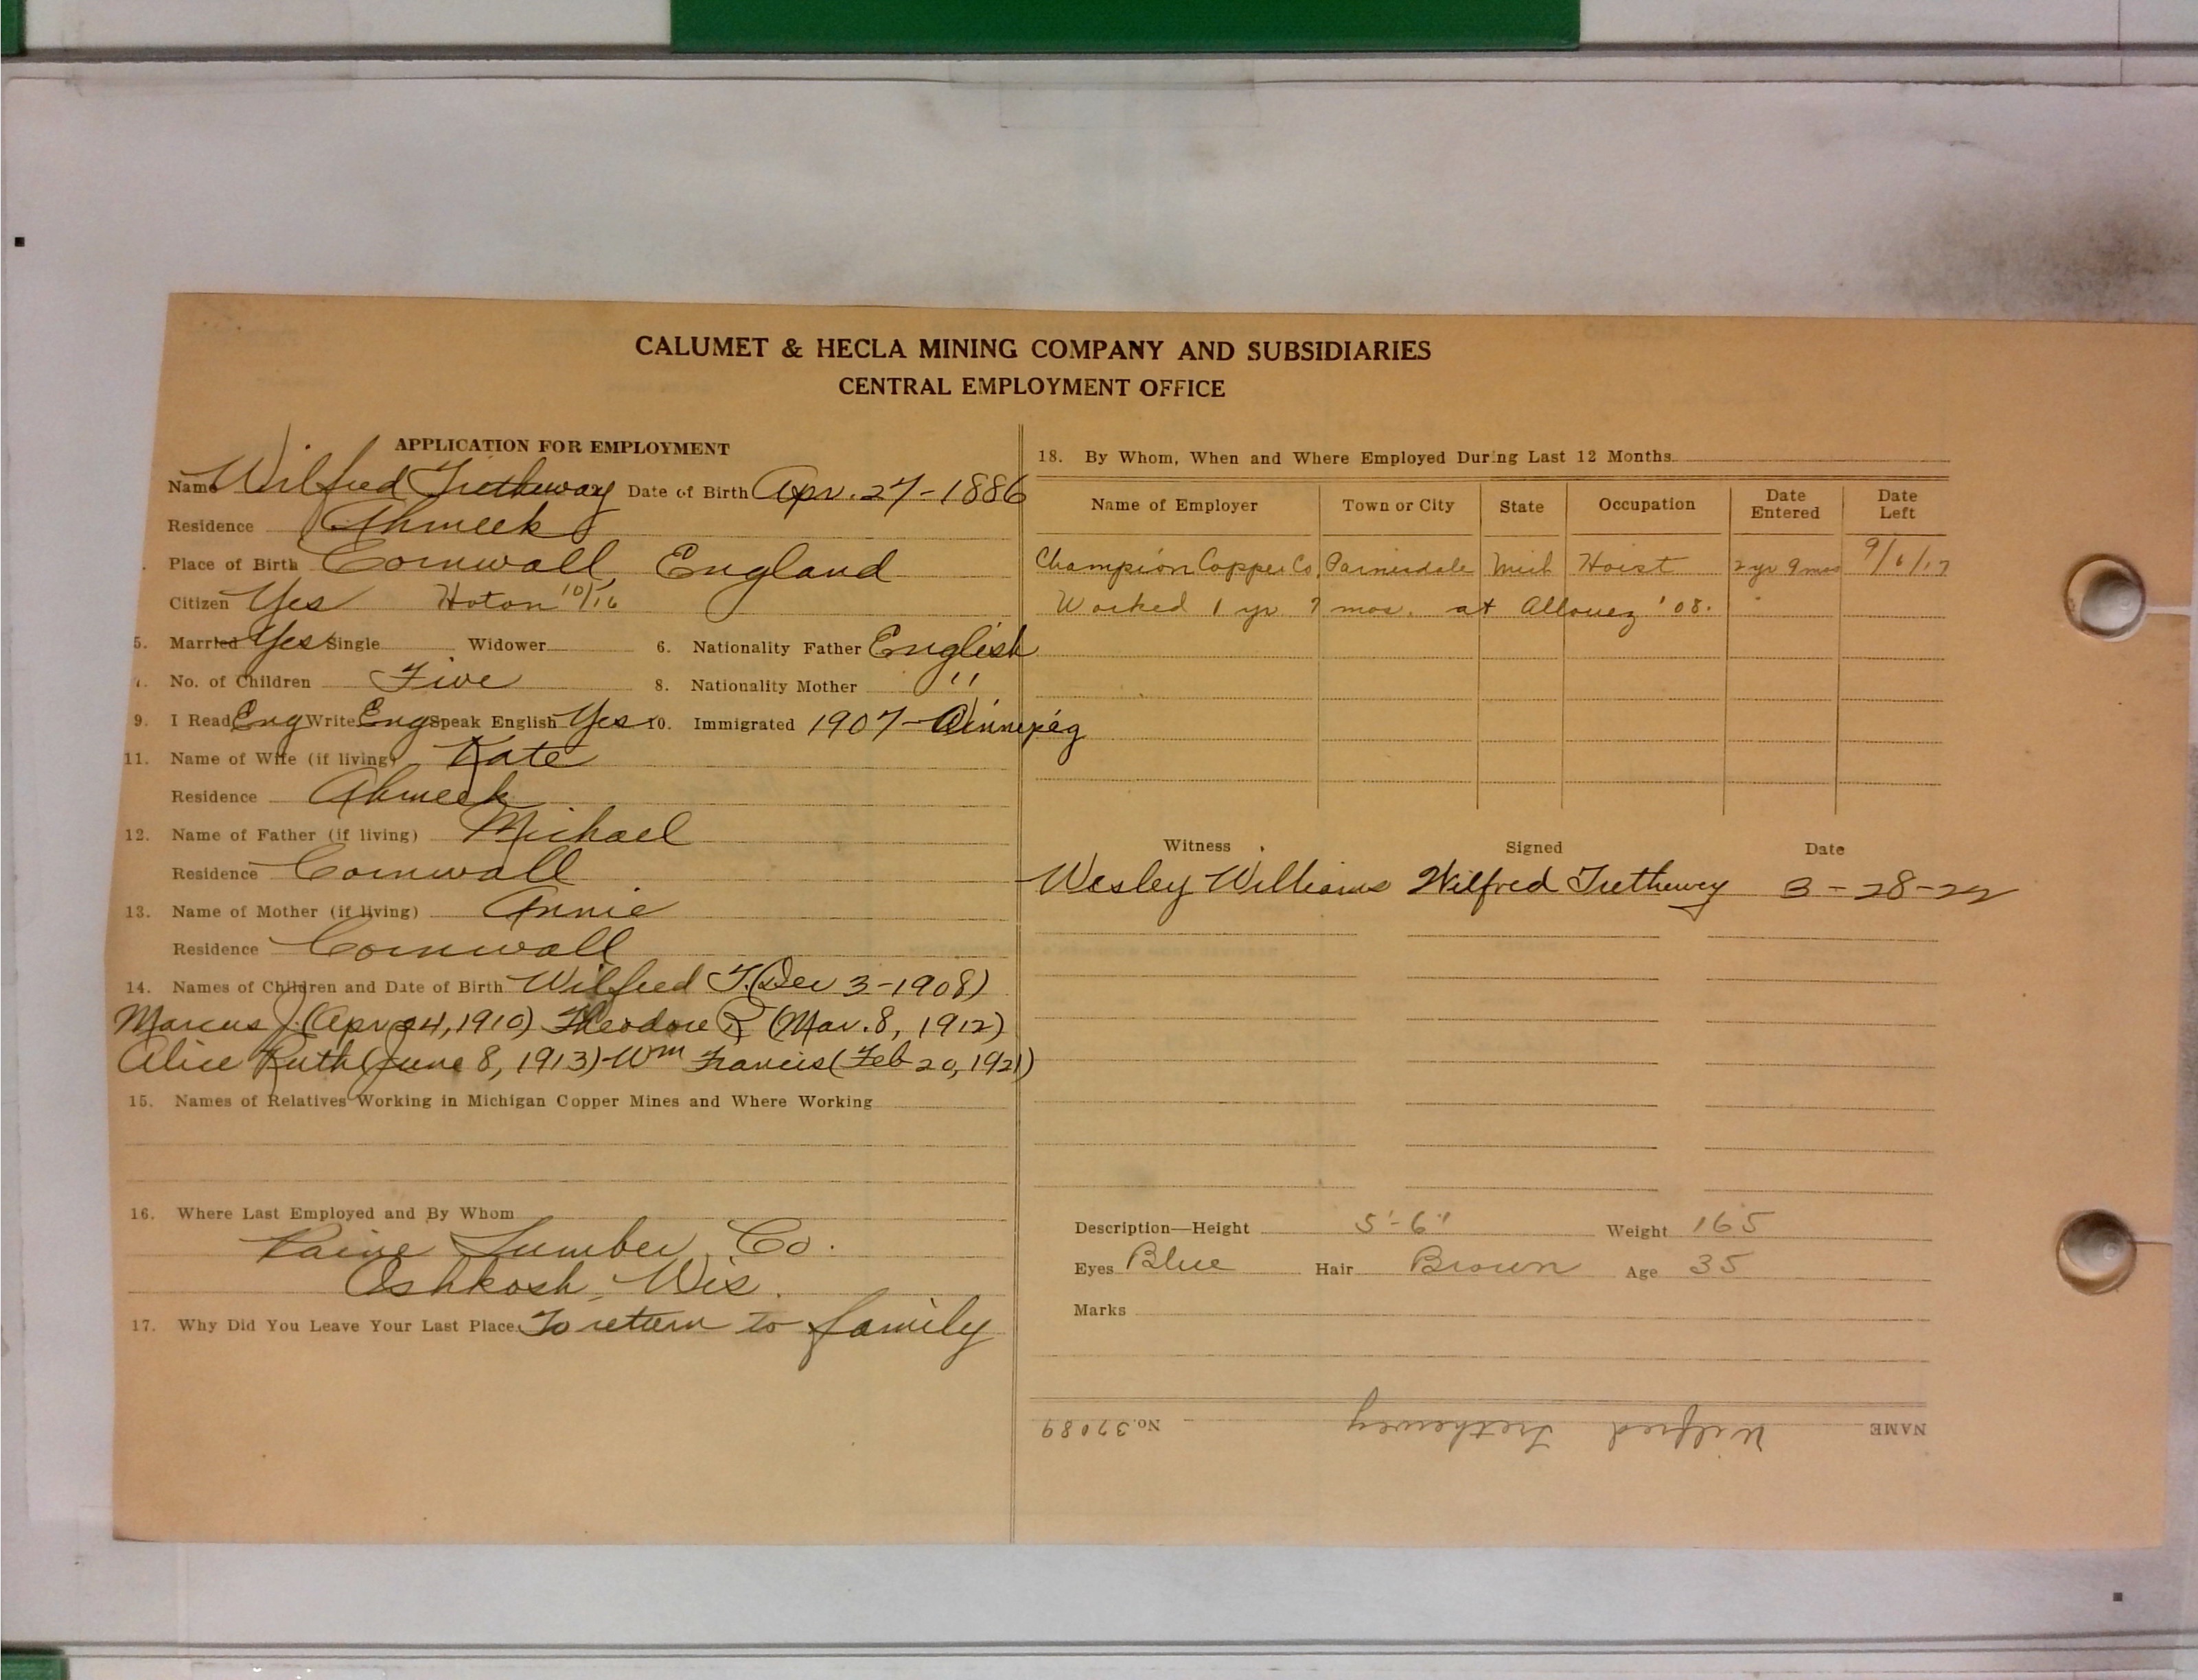 CALUMET & HECLA MINING COMPANY AND SUBSIDIARIES
CENTRAL EMPLOYMENT OFFICE
APPLICATION FOR EMPLOYMENT
Name Wilfred Tretheway Date of Birth Apr. 27-1886
Residence Ahmeek
Place of Birth Cornwall, England
Citizen Yes Hoton 10/16
5. Married Yes Single Widower 6. Nationality Father English
No. of Children Five 8. Nationality Mother "
9. I Read Eng Write Eng Speak English Yes 10. Immigrated 1907-Winnepeg
11. Name of Wife (if living) Kate
Residence Ahmeek
12. Name of Father (if living) Michael
Residence Cornwall
13. Name of Mother (if living) Annie
Residence Cornwall
14. Names of Children and Date of Birth Wilfred T. (Dec 3-1908)
Marcus J. (Apr 24, 1910) Theodore R (Mar. 8, 1912)
Alice Ruth (June 8, 1913) Wm Francis (Feb 20, 1921)
15. Names of Relatives Working in Michigan Copper Mines and Where Working
16. Where Last Employed and By Whom
Paine Lumber Co.
Oshkosh, Wis.
17. Why Did You Leave Your Last Place To return to family
18. By Whom, When and Where Employed During Last 12 Months
Name of Employer Town or City State Occupation Date Entered Date Left
Champion Copper Co. Painesdale Mich Hoist 2 yr 9 mos 9/6/17
Worked 1 yr 7 mos. at Allouez '08.
Witness Signed Date
Wesley Williams Wilfred Trethewey 3-28-22
Description—Height 5'-6" Weight 165
Eyes Blue Hair Brown Age 35
Marks
NAME Wilfred Trethewey No. 37089